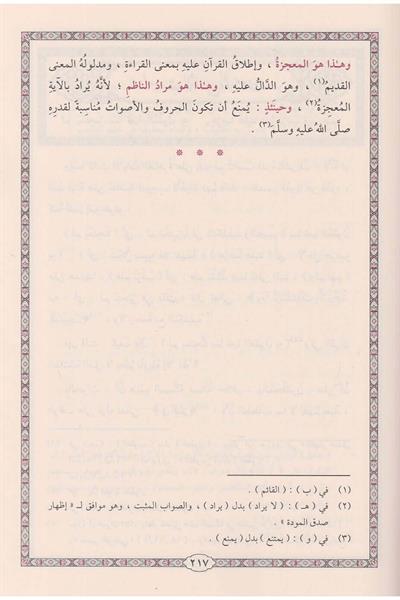 وهـٰذا هوَ المعجزةُ ، وإطلاقُ القرآنِ عليهِ بمعنى القراءةِ ، ومدلولُهُ المعنى
القديمُ(١) ، وهوَ الدَّالُّ عليهِ ، وهـٰذا هوَ مرادُ الناظمِ ؛ لأنَّهُ يُرادُ بالآيةِ
المُعجِزةُ(٢) ، وحينَئذٍ : يُمنَعُ أن تكونَ الحروفُ والأصواتُ مُناسِبةً لقدرِهِ
صلَّى اللهُ عليهِ وسلَّمَ(٣) .
* * *
(١) في ( ب ) : ( القائم ) .
(٢) في ( هـ ) : ( لا يراد ) بدل ( يراد ) ، والصواب المثبت ، وهو موافق لـ « إظهار
صدق المودة » .
(٣) في ( و ) : ( يمتنع ) بدل ( يمنع ) .
٢١٧